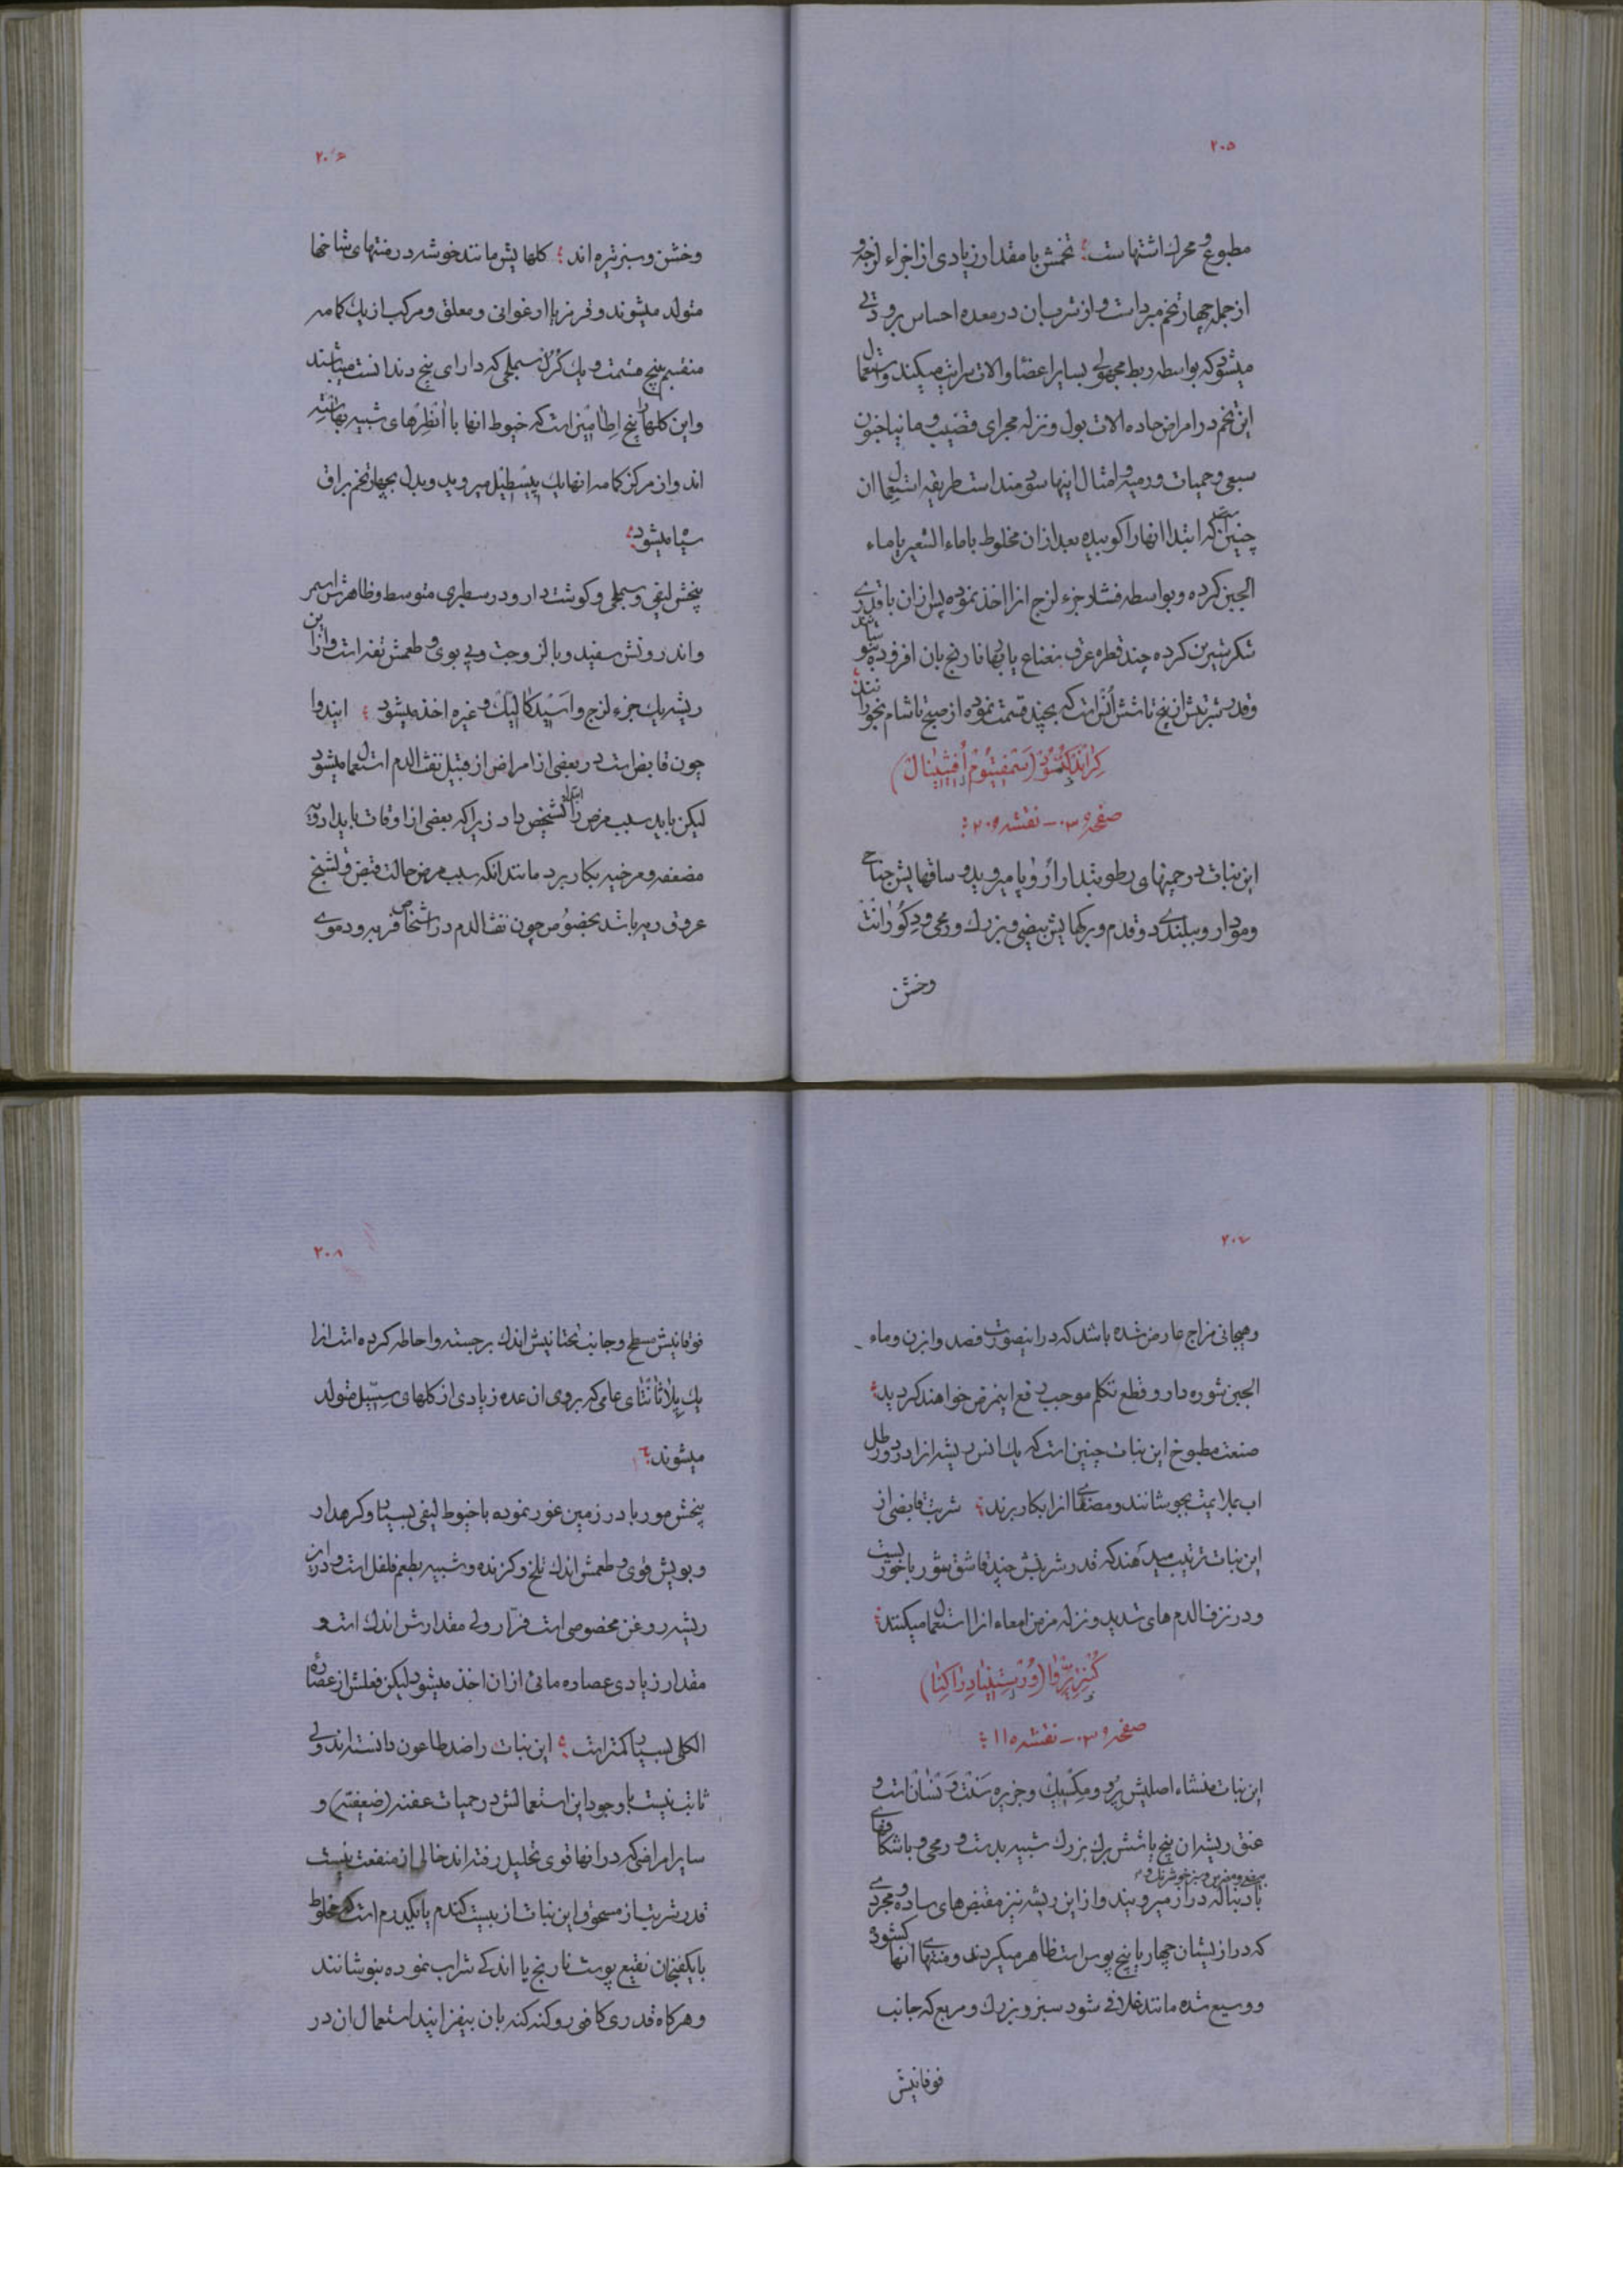 ۲۰۵
مطبوع و محرک اشتهاست؛ تخمش با مقدار زیادی از اجزاء لزجه و
از جمله چهار تخم مبرد است و از شرب ان در معده احساس برودتی
میشود که بواسطه ربط مجهولی بسایر اعضا و الات سرایت میکند و استعمال
این تخم در امراض حاده الات بول و نزله مجرای قضیب و مانیا جنون
سبعی و حمیات ورمیه و امثال اینها سودمند است طریقه استعمال ان
چنین است که ابتدا انها را کوبیده بعد از ان مخلوط با ماء الشعیر یا ماء
الجبن کرده و بواسطه فشار جزء لزج انرا اخذ نموده پس از ان با قدری
شکر شیرین کرده چند قطره عرق نعناع یا بهار نارنج بان افزوده بنوشانند
و قدر شربتش از پنج تا شش اُنس است که بچند قسمت نموده از صبح تا شام بخورانند
کراندکنسود (سمفیتوم افیشینال)
صفحه ۳۰ - نقشه ۲۰۹؛
این نبات در چمنهای رطوبتدار اروپا میروید و ساقهایش جناحی
و مودار و ببلندی دو قدم و برکهایش بیضی و بزرک و رمحی و دکورانت
وخشن
۲۰۶
وخشن و سبز تیره اند؛ کلهایش مانند خوشه در منتهای شاخها
متولد میشوند و قرمز یا ارغوانی و معلق و مرکب از یک کامه
منقسم بپنج قسمت و یک کرل سمبلی که دارای پنج دندانست میباشند
و این کلها را پنج اطامین است که خیوط انها با انطرهای شبیه بهاشته
اند و از مرکز کامه انها یک پیسطیل میروید و بدل بچهار تخم براق
سیاه میشود؛
بیخش لیفی و سمبلی و کوشت دار و در سطبری متوسط و ظاهرش اسمر
و اندرونش سفید و با لزوجت و بی بوی و طعمش تفه است و از این
ریشه یک جزء لزج و اسید کالیک و غیره اخذ میشود؛ ایندوا
چون قابض است در بعضی از امراض از قبیل نفث الدم استعمال میشود
لیکن باید سبب مرض را ابتدا تشخیص داد زیرا که بعضی از اوقات باید ادویه
مضعفه و مرخیه بکار برد مانند انکه سبب مرض حالت قبض و تشنج
عروق ریه باشد بخصوص چون نفث الدم در اشخاص فربه و دموی
۲۰۷
و هیجانی مزاج عارض شده باشد که در اینصورت فصد و ابزن و ماء
الجبن شوره دار و قطع تکلم موجب دفع اینمرض خواهند کردید؛
صنعت مطبوخ این نبات چنین است که یک انس ریشه انرا در دو رطل
اب بملایمت بجوشانند و مصفای انرا بکار برند؛ شربت قابضی از
این نبات ترتیب میدهند که قدر شربتش چند قاشق شوربا خوریست
و در نزف الدم های شدید و نزله مزمن امعاء انرا استعمال میکنند؛
کنتریروا (درستنیا دراکنا)
صفحه ۳۰ - نقشه ۱۱؛
این نبات منشاء اصلیش پرو و مکسیک و جزیره سنت ونسان است و
عنق ریشه ان پنج یا شش برک بزرک شبیه بدست و رمحی و با شکافهای
با دنباله دراز میرویند و از این ریشه نیز مقبض های ساده و مجردی
که درازیشان چهار یا پنج پوس است ظاهر میکردند و منتهای انها کشوده
و وسیع شده مانند غلافی شود سبز و بزرک و مربع که جانب
فوقانیش
۲۰۸
فوقانیش مسطح و جانب تحتانیش اندک برجسته و احاطه کرده است انرا
یک پلاثانتای عامی که بروی ان عده زیادی از کلهای سسیل متولد
میشوند؛
بیخش مورب یا در زمین غور نموده با خیوط لیفی بسیار و کره دار
و بویش قوی و طعمش اندک تلخ و کزنده و شبیه بطعم فلفل است و در این
ریشه روغن مخصوصی است فرّار ولی مقدارش اندک است و
مقدار زیادی عصاره مائی از ان اخذ میشود لیکن فعلش از عصاره
الکلی بسیار کمتر است؛ این نبات را ضد طاعون دانسته اند ولی
ثابت نیست با وجود این استعمالش در حمیات عفنه (ضعیفیّه) و
سایر امراضی که در انها قوی تحلیل رفته اند خالی از منفعت نیست
قدر شربت از مسحوق این نبات از بیست کندم یا یکدرم است که مخلوط
با یکفنجان نقیع پوست نارنج یا اندکی شراب نموده بنوشانند
و هرکاه قدری کافور و کنه کنه بان بیفزایند استعمال ان در